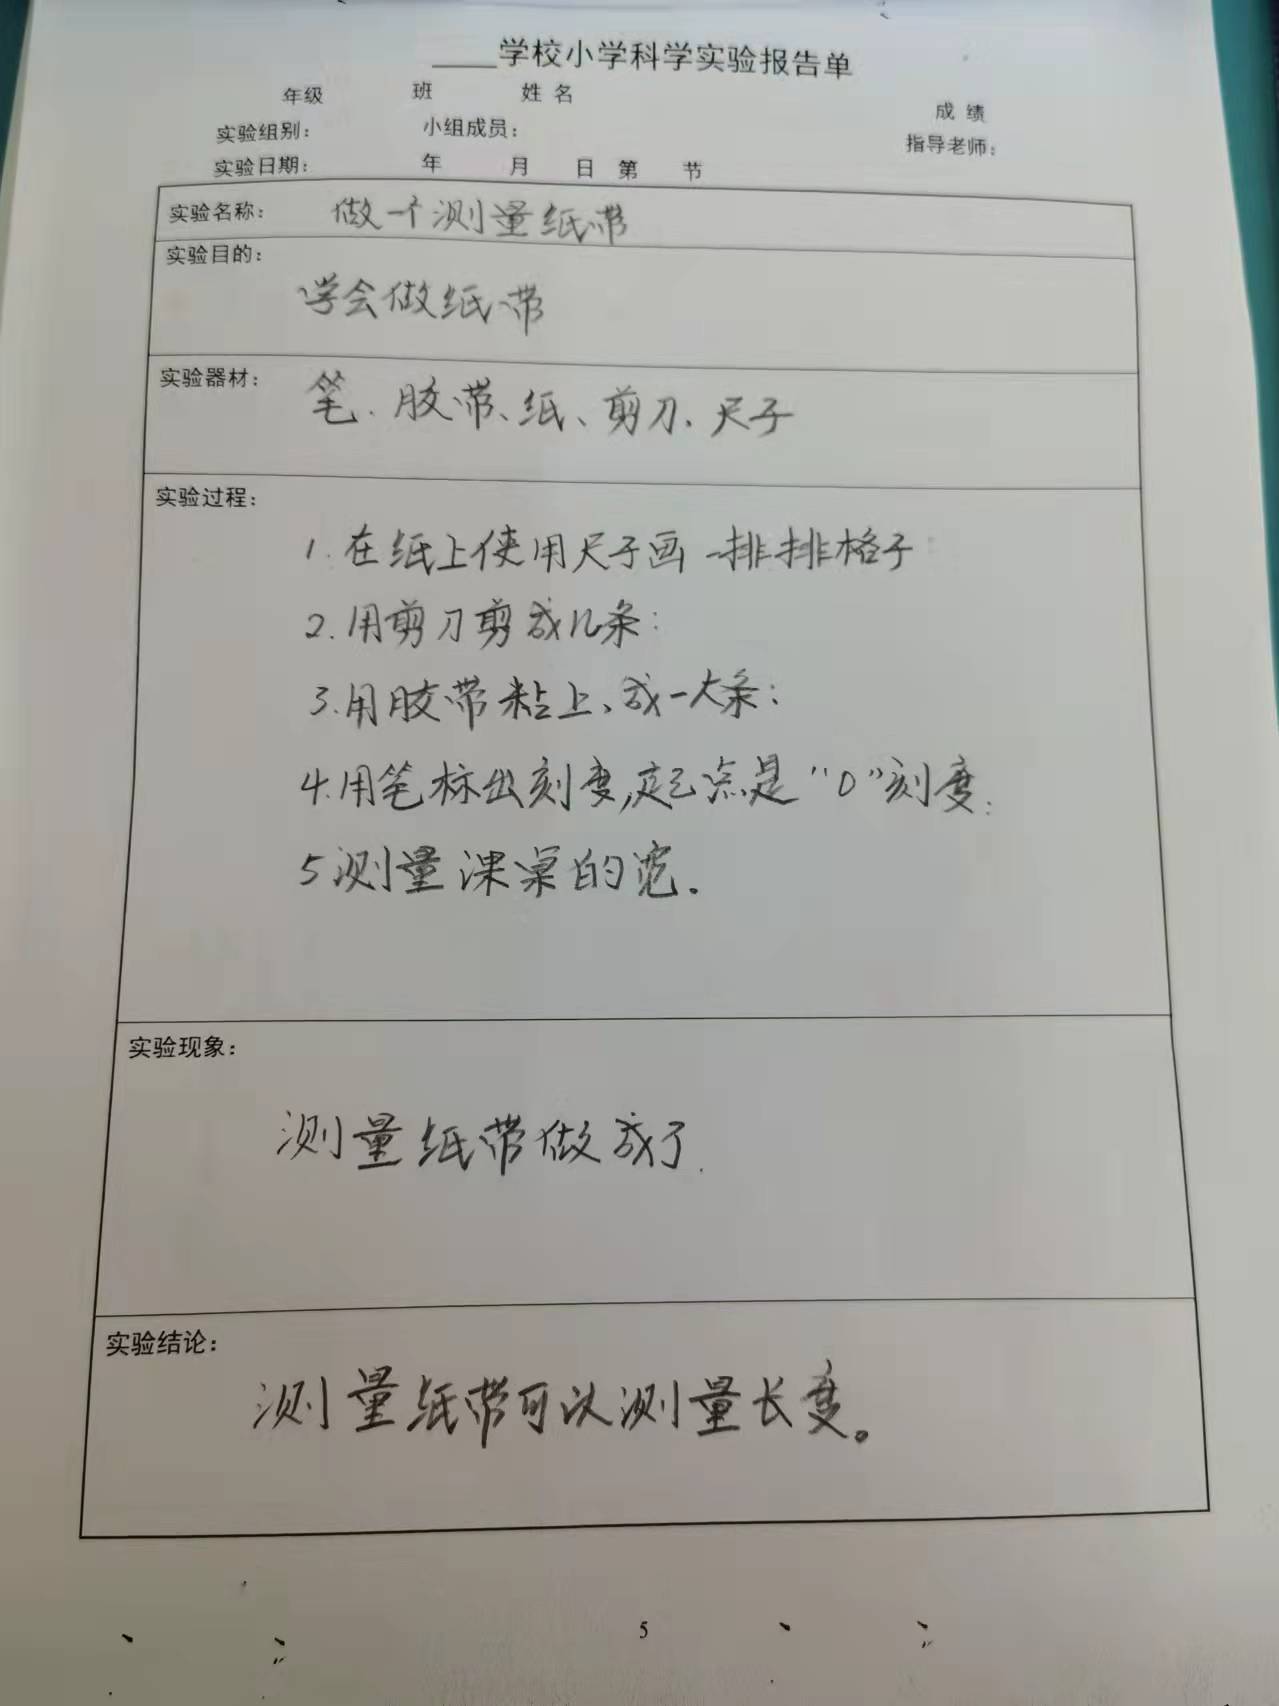 ____学校小学科学实验报告单
年级 班 姓 名 成 绩
实验组别： 小组成员： 指导老师：
实验日期： 年 月 日 第 节
实验名称： 做一个测量纸带
实验目的：
学会做纸带
实验器材： 笔、胶带、纸、剪刀、尺子
实验过程：
1.在纸上使用尺子画一排排格子
2.用剪刀剪成几条；
3.用胶带粘上、成一大条；
4.用笔标出刻度,起点是“0”刻度；
5测量课桌的宽.
实验现象：
测量纸带做成了.
实验结论：
测量纸带可以测量长度。
5